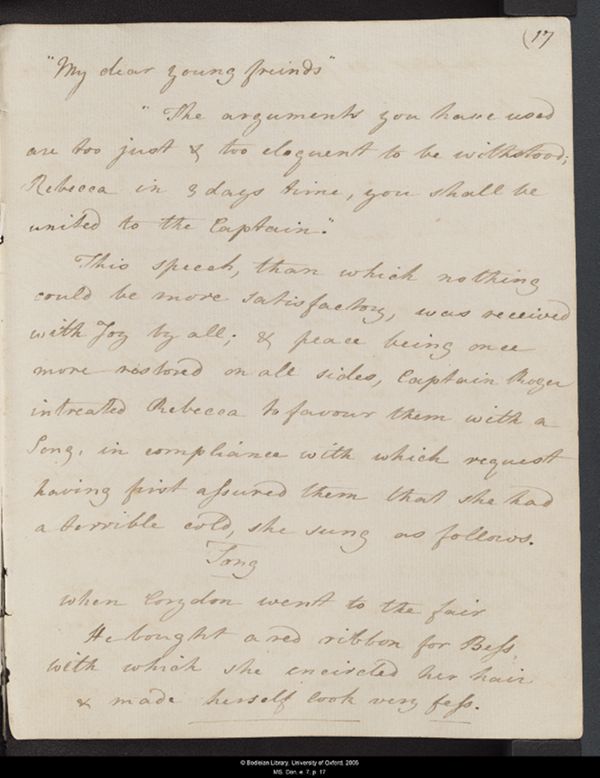 (17
"My dear young freinds"
"The arguments you have used
are too just & too eloquent to be withstood;
Rebecca in 3 days time, you shall be
united to the Captain."
This speech, than which nothing
could be more satisfactory, was received
with Joy by all; & peace being once
more restored on all sides, Captain Roger
intreated Rebecca to favour them with a
Song, in compliance with which request
having first assured them that she had
a terrible cold, she sung as follows.
Song
When Corydon went to the fair
He bought a red ribbon for Bess,
with which she encircled her hair
& made herself look very fess.
© Bodleian Library, University of Oxford, 2005
MS. Don. e. 7, p. 17